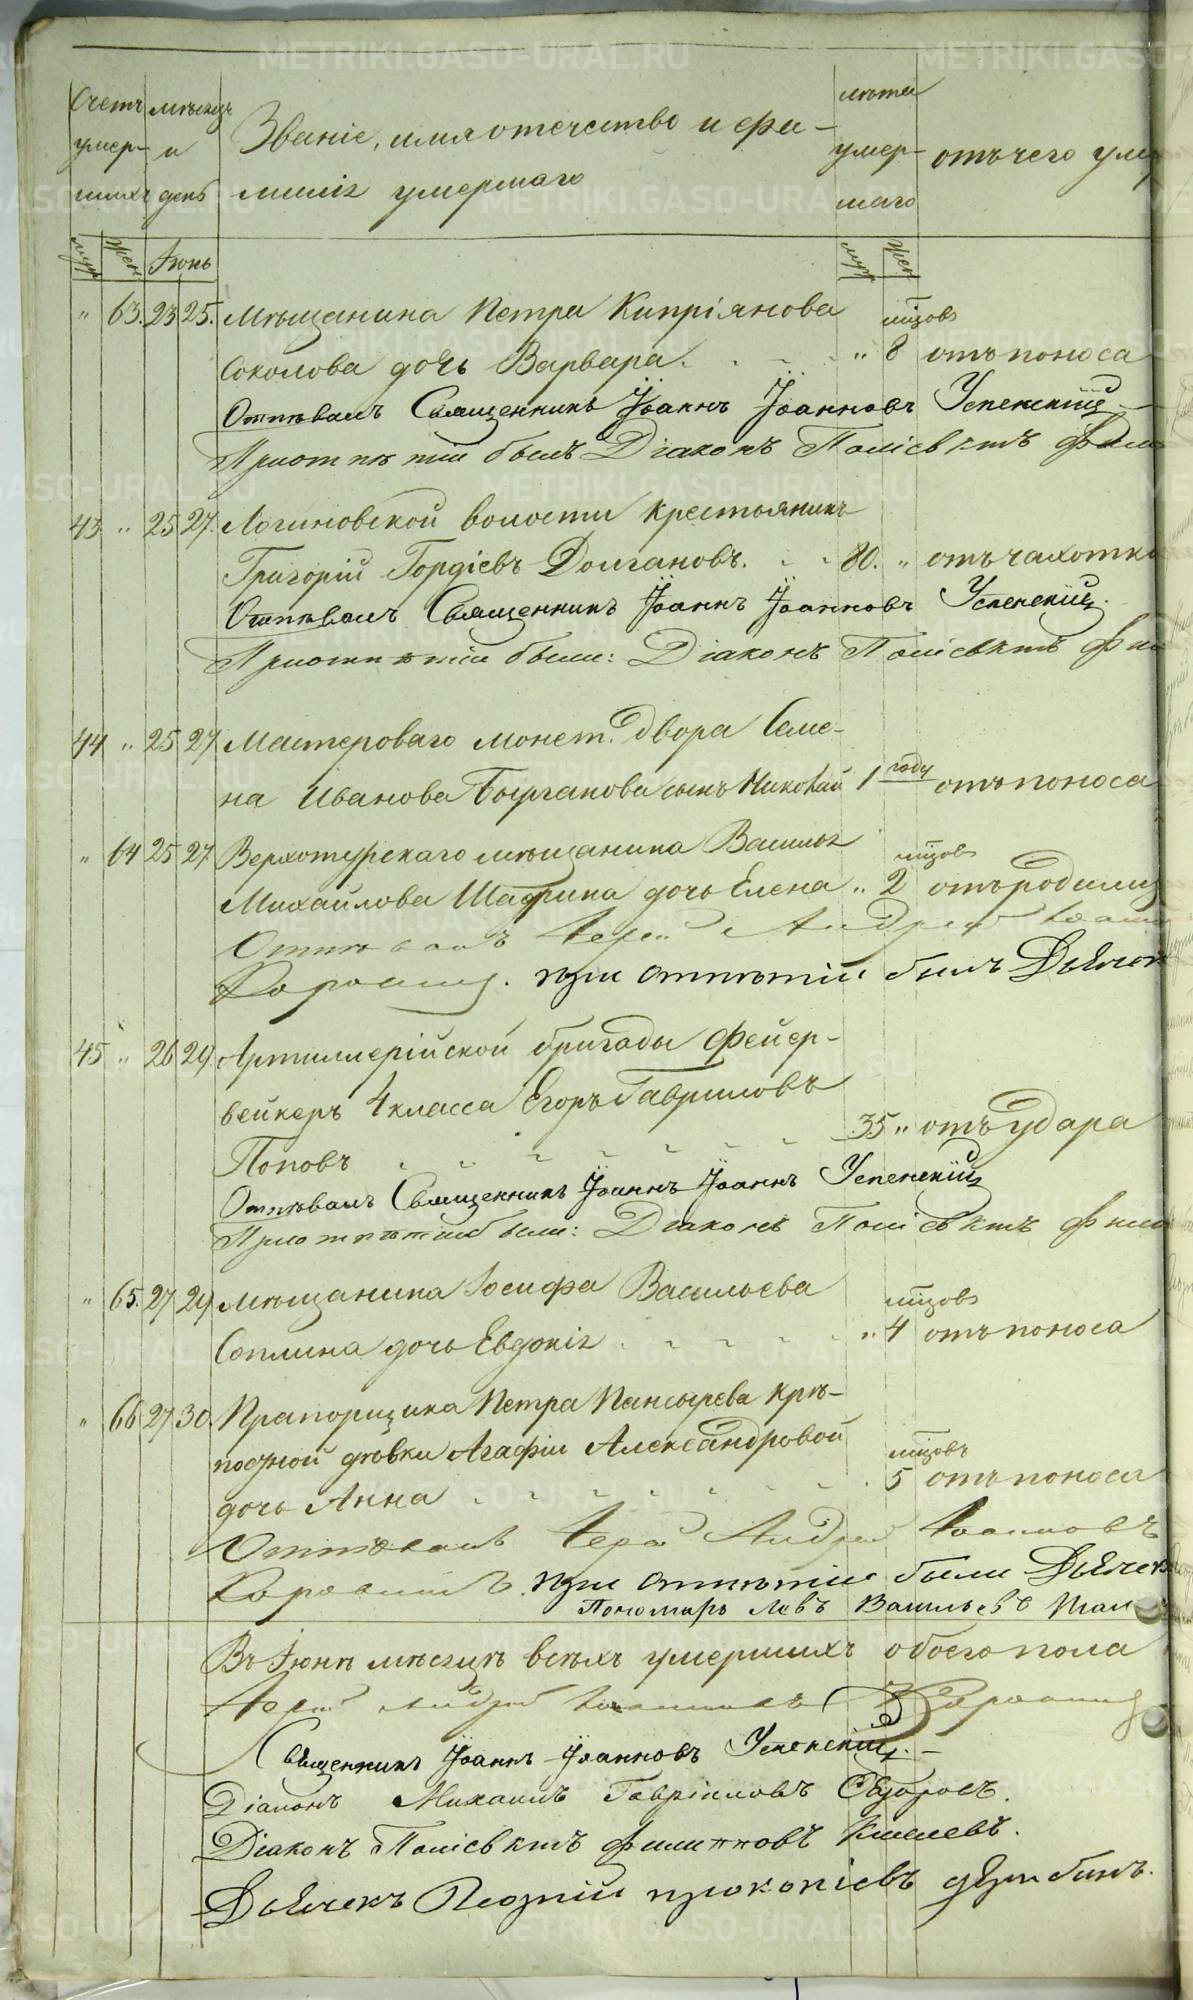 METRIKI.GASO-URAL.RU
Счетъ умер- шихъ
мѣсяцъ и день
Званіе, имя отечество и фа-
милія умершаго
лѣта умер- шаго
отъ чего уме
муж жен Іюнь муж жен
" 63. 23 25. Мѣщанина Петра Кипріянова мѣсяцовъ
Соколова дочь Варвара. " 8 отъ поноса
Отпѣвалъ Священникъ Іоаннъ Іоанновъ Успенскій
При отпѣтіи былъ Діаконъ Поліевктъ Фили
43 " 25 27. Логиновской волости крестьянинъ
Григорій Гордіевъ Долгановъ. 80. " отъ чахотки
Отпѣвалъ Священникъ Іоаннъ Іоанновъ Успенскій.
При отпѣтіи были: Діаконъ Поліевктъ Фи
44 " 25 27 Мастероваго монет. двора Семе-
на Иванова сынъ Николай 1 году отъ поноса
" 64 25 27 Верхотурскаго мѣщанина Василья мѣсяцовъ
Михайлова Шадрина дочь Елена " 2 отъ родимц
Отпѣвалъ Іерей Андрей Іоанн
при отпѣтіи былъ Дьячек
45 " 26 29. Артиллерійской бригады фейер-
вейкеръ 4 класса Егоръ Гавриловъ
Поповъ 35 " отъ удара
Отпѣвалъ Священникъ Іоаннъ Іоаннъ Успенскій
При отпѣтіи были: Діаконъ Поліевктъ Фили
" 65. 27 29 Мѣщанина Іосифа Васильева мѣсяцовъ
Соплина дочь Евдокія " 4 отъ поноса
" 66 27 30. Прапорщика Петра Пансырева крѣ-
постной дѣвки Агафіи Александровой мѣсяцовъ
дочь Анна 5 отъ поноса
Отпѣвалъ Іерей Андрей Іоанновъ
при отпѣтіи были Дьячек
Пономарь Левъ Васильевъ
Въ Іюнѣ мѣсяцѣ всѣхъ умершихъ обоего пола
Іерей Андрей Іоанновъ
Священникъ Іоаннъ Іоанновъ Успенскій.
Діаконъ Михаилъ Гавріиловъ
Діаконъ Поліевктъ Филипповъ Киселевъ.
Дьячекъ прокопіевъ